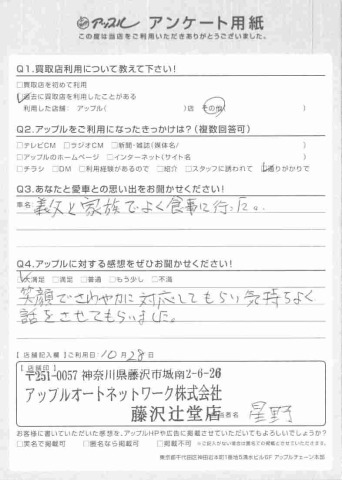 アップル アンケート用紙
この度は当店をご利用いただきありがとうございました。
Q1.買取店利用について教えて下さい!
□買取店を初めて利用
□過去に買取店を利用したことがある
利用した店舗: アップル( )店 その他( )
Q2.アップルをご利用になったきっかけは?(複数回答可)
□テレビCM □ラジオCM □新聞・雑誌(媒体名 )
□アップルのホームページ □インターネット(サイト名 )
□チラシ □DM □利用経験があるので □紹介 □スタッフに誘われて □通りがかりで
Q3.あなたと愛車との思い出をお聞かせください!
車名: 義父と家族でよく食事に行った。
Q4.アップルに対する感想をぜひお聞かせください!
□大満足 □満足 □普通 □もう少し □不満
笑顔でさわやかに対応してもらい気持ちよく
話をさせてもらいました。
【店舗記入欄】ご利用日:10月28日
【店舗印】
〒251-0057 神奈川県藤沢市城南2-6-26
アップルオートネットワーク株式会社
藤沢辻堂店
当者名 星野
お客様に書いていただいた感想を、アップルHPや広告に掲載させていただいてもよろしいでしょうか?
□実名で掲載可 □匿名なら掲載可 □掲載不可 ※ご記入がない場合は匿名での掲載とさせていただきます。
東京都千代田区神田岩本町1番地5清水ビル5F アップルチェーン本部